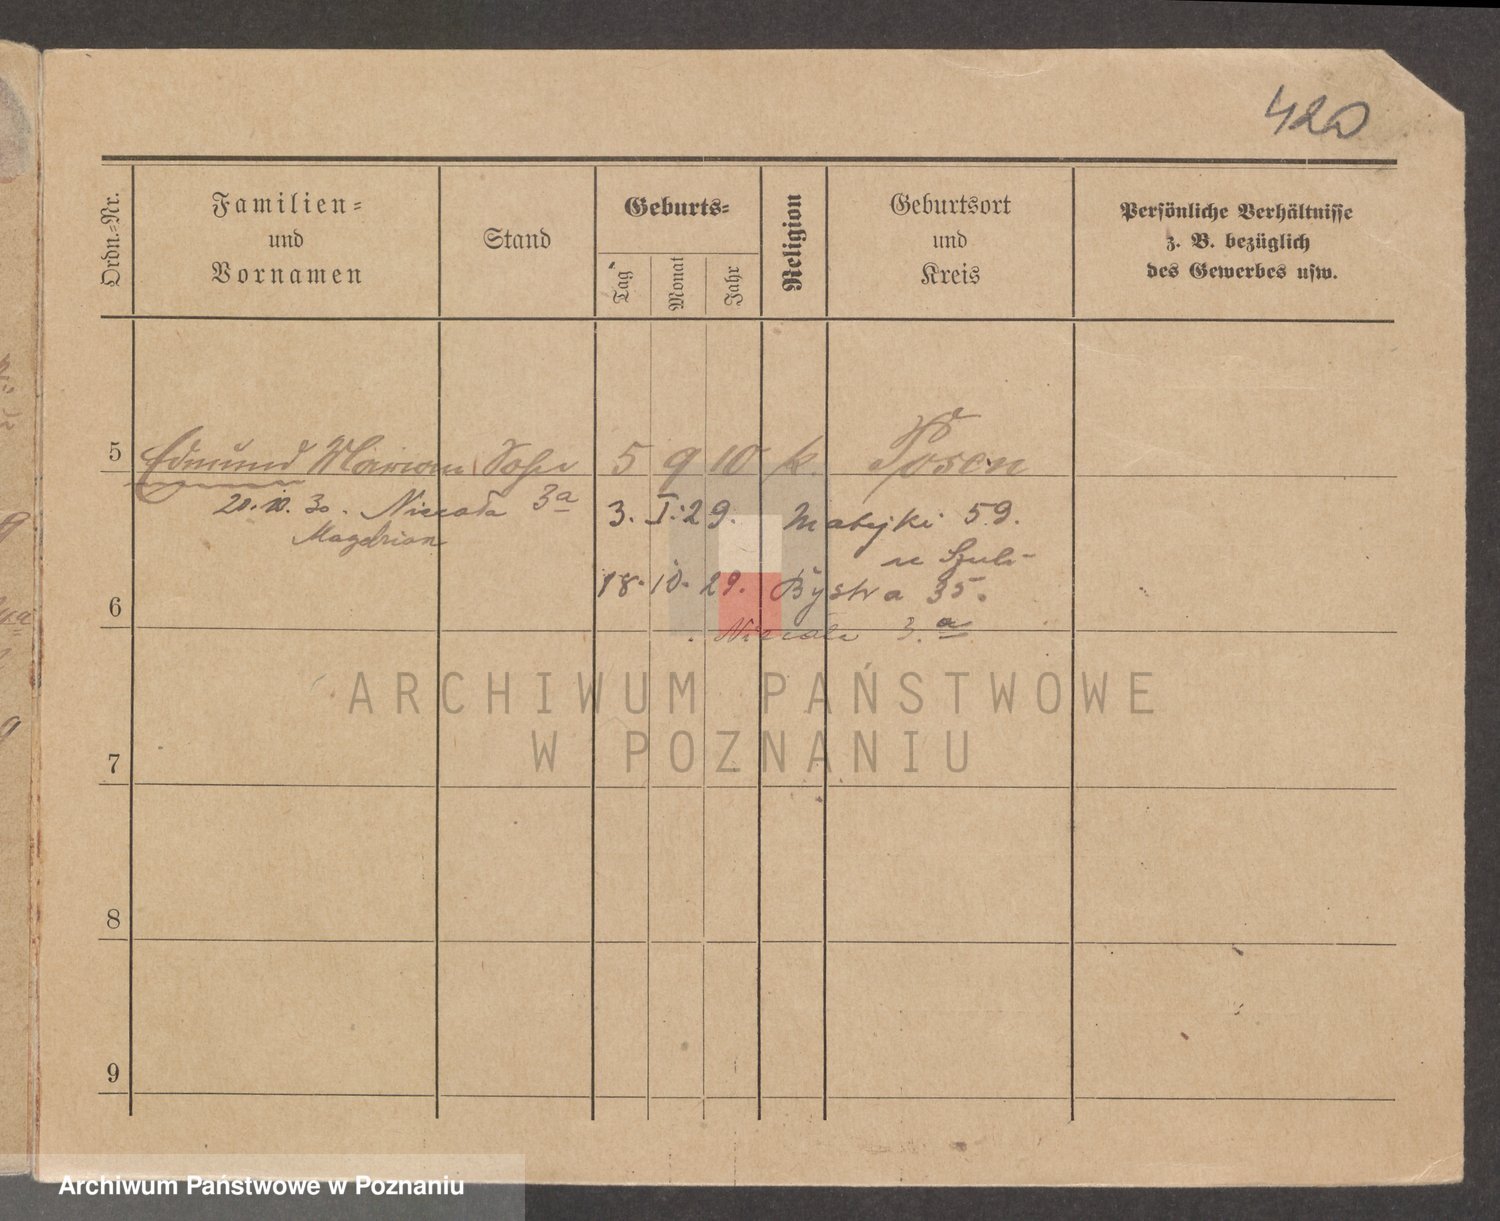 420
Ordn.-Nr.
Familien-
und
Vornamen
Stand
Geburts-
Tag
Monat
Jahr
Religion
Geburtsort
und
Kreis
Persönliche Verhältnisse
z. B. bezüglich
des Gewerbes usw.
5 Edmund Marian Sohn 5 9 10 k. Posen
20.10.30. Niecała 3a 3. I. 29. Matejki 59.
u Szulc
18. 10. 29. Bystra 35.
6
Niecała 3.a
ARCHIWUM PAŃSTWOWE
W POZNANIU
7
8
9
Archiwum Państwowe w Poznaniu